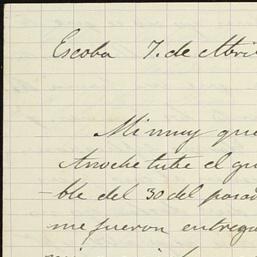 Escoba 7. de Abri
Mi muy que
Anoche tube el gu
-ble del 30 del pasa
me fueron entrega